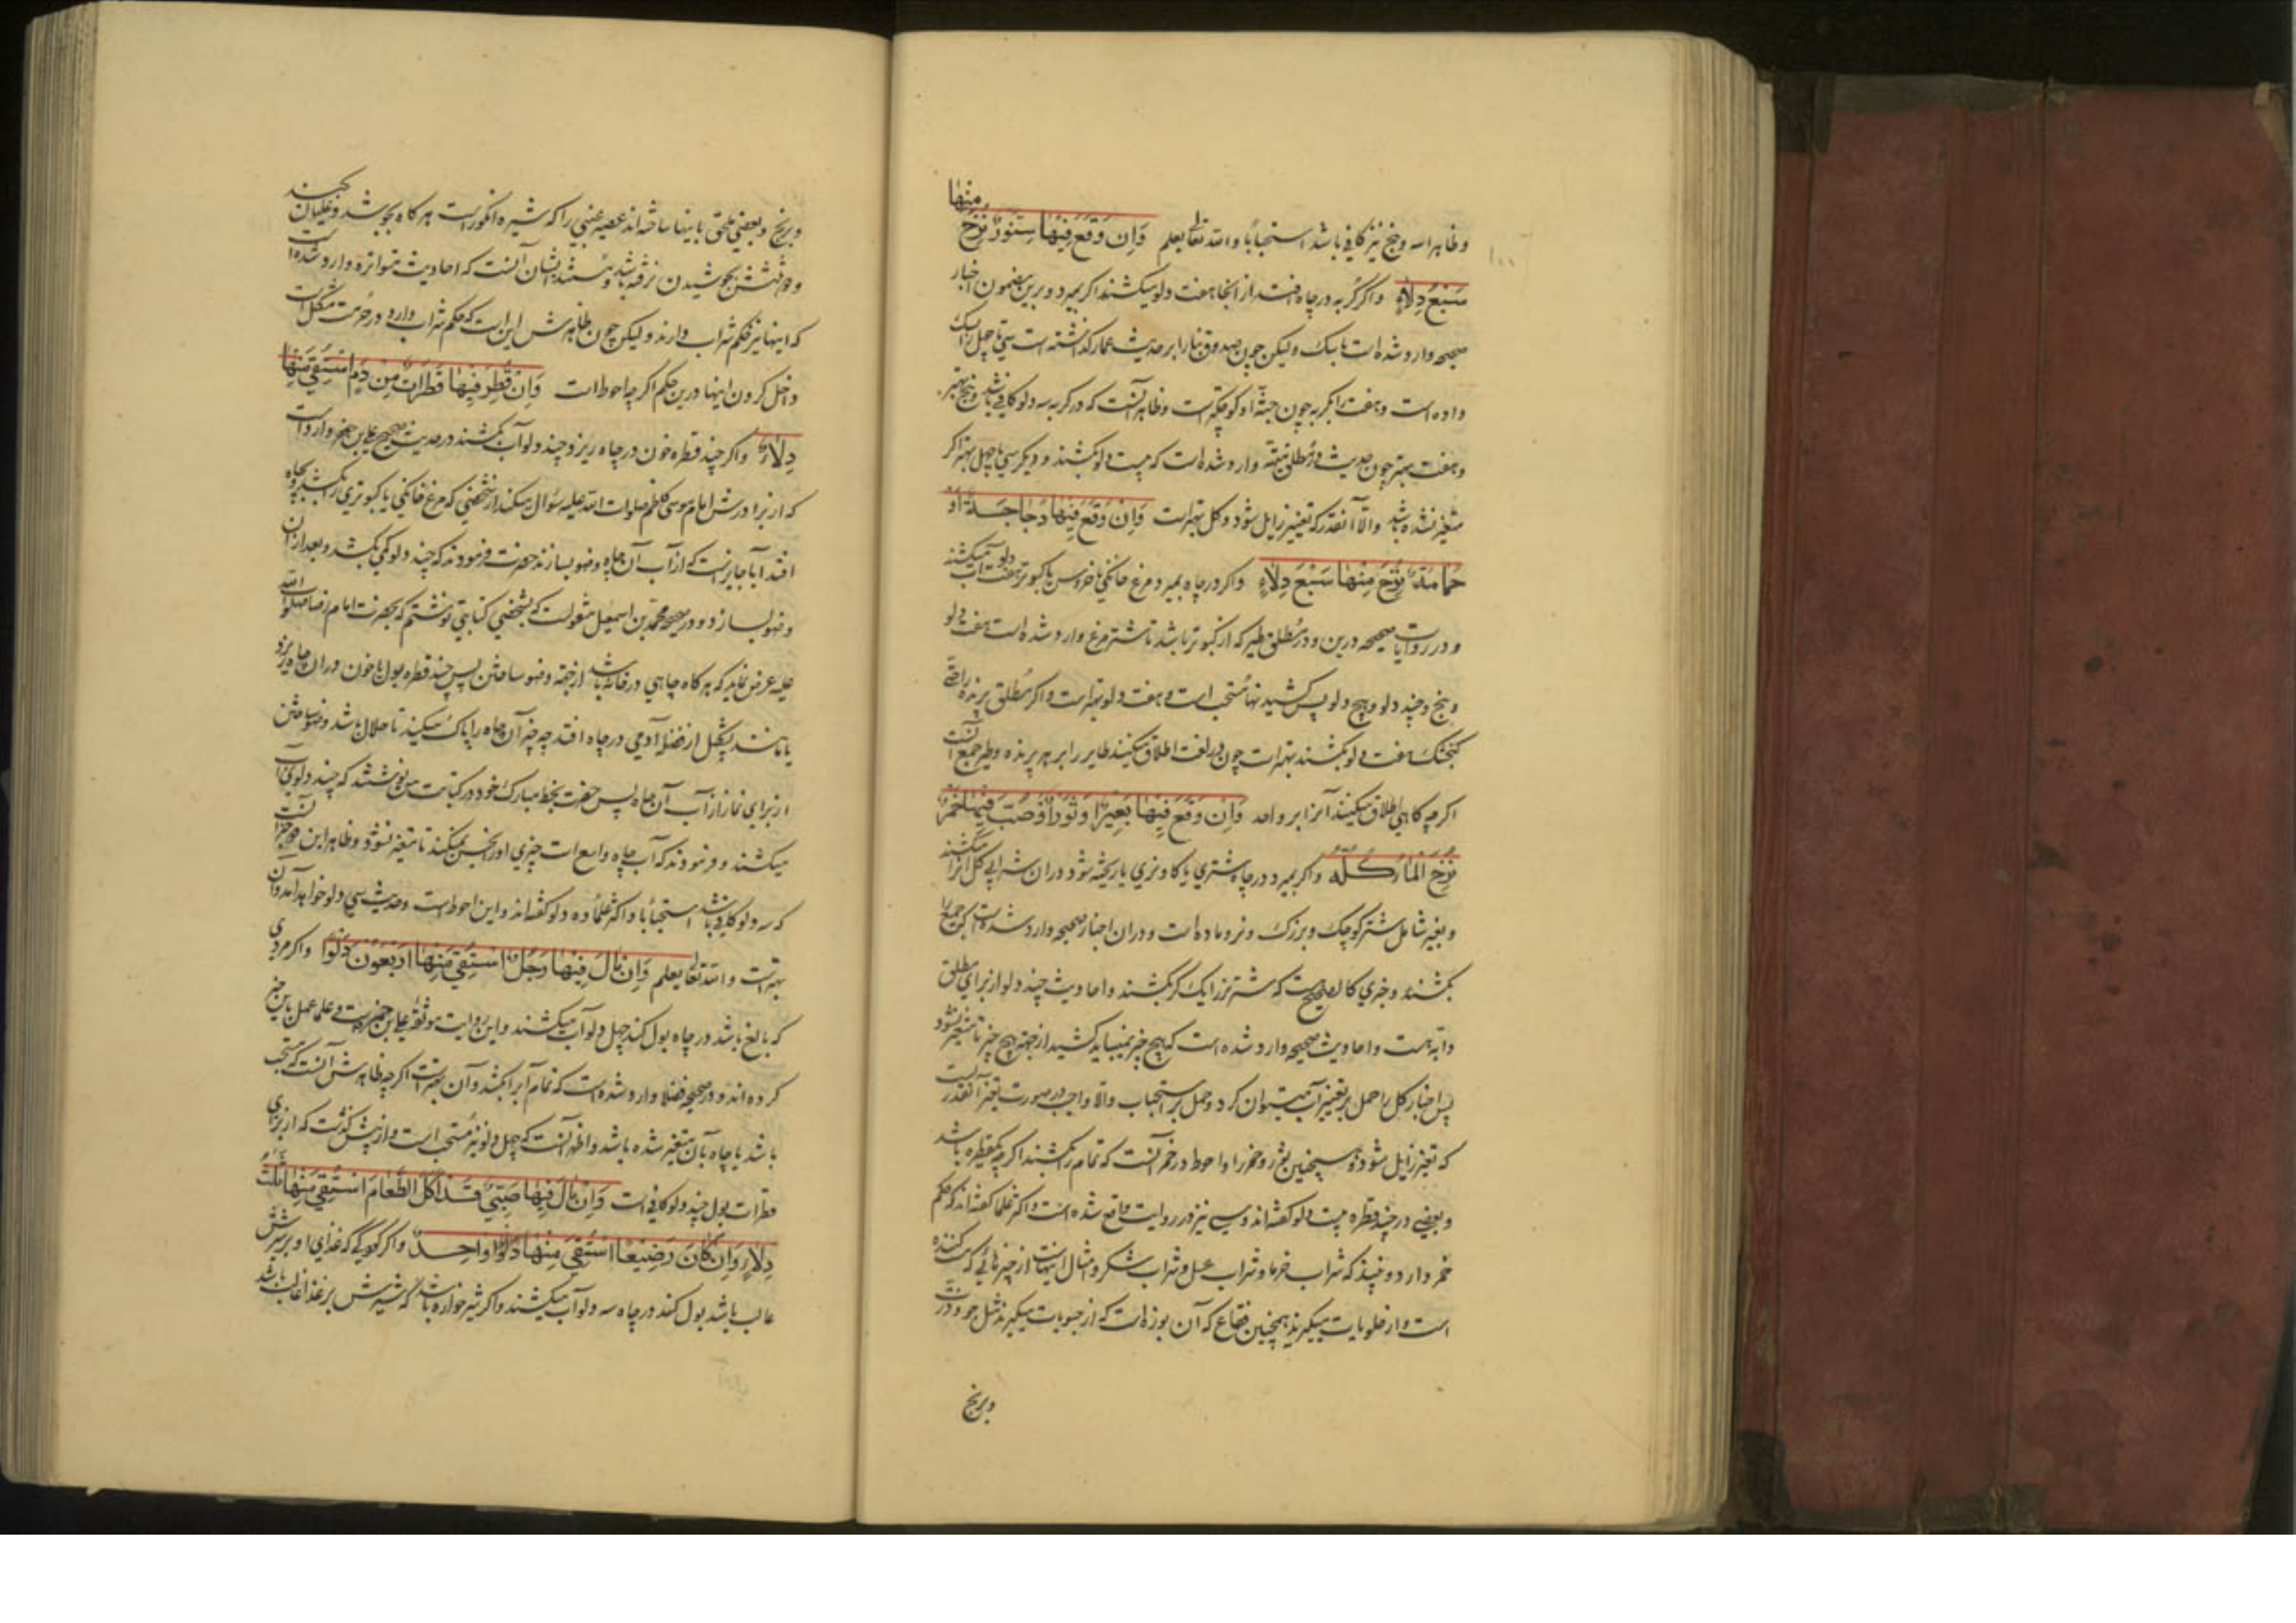 وظاهرا سه و پنج نیز کافی باشد استحبابا والله تعالی یعلم وَاِن وَقَعَ فِیهٰا سِنَّورٌ نُزِحَ مِنهٰا
سَبعُ دِلاٰءٍ واگر گربه در چاه افتد از آنجا هفت دلو میکشند اگر بمیرد و برین مضمون اخبار
صحیحه وارد شده است با سک ولیکن چون صدوق بنا را بر حدیث عمار گذاشته است سی تا چهل را بسک
داده است و هفت را بگربه چون جثه او کوچکتر است وظاهر آنست که در گربه سه دلو کافی باشد و پنج بهتر
و هفت بهتر چون حدیث در مطلق میته وارد شده است که بیست دلو بکشند و دیگر سی تا چهل بهتر اگر
متغیر نشده باشد والا آنقدر که تغییر زایل شود و کل بهتر است وَاِن وَقَعَ فِیهٰا دَجٰاجَةٌ اَو
حَمٰامَةٌ نُزِحَ مِنهٰا سَبعَ دِلاٰءٍ واگر در چاه بمیرد مرغ خانگی یا خروس یا کبوتر هفت دلو آب میکشند
و در روایات صحیحه درین و در مطلق طیر که از کبوتر باشد تا شتر مرغ وارد شده است هفت دلو
و پنج و چند دلو و پنج دلو پس کشیدنها مستحب است و هفت دلو بهتر است واگر مطلق پرنده را حتی
کنجشک هفت دلو بکشند بهتر است چون در لغت اطلاق میکنند طایر را بر هر پرنده و طیر جمع آنست
اگر چه کاهی اطلاق میکنند آنرا بر واحد وَاِن وَقَعَ فِیهٰا بَعِیرٌ اَو ثَورٌ اَو صُبَّ فِیهٰا خَمرٌ
نُزِحَ المٰاءُ کُلُّه واگر بمیرد در چاه شتری یا کاو نری یا ریخته شود در ان شرابی کل آنرا میکشند
و بعیر شامل شتر کوچک و بزرک و نر و ماده است و در ان اخبار صحیحه وارد شده است
بکشند و خبری کالصحیح هست که شتر نر را یک کر بکشند و احادیث چند دلو از برای مطلق
دابه هست و احادیث صحیحه وارد شده است که هیچ چیز نمیباید کشید از جهة هیچ چیز تا متغیر نشود
پس اخبار کل را حمل بر تغییر آب میتوان کرد و حمل بر استحباب والا واجب در صورت تغیر آنقدر است
که تغیر زایل شود و همچنین ثور و خمر را و احوط در خمر آنست که تمام را بکشند اگر چه یکقطره باشد
و بعضی در چند قطره بیست دلو گفته اند و سی نیز در روایت واقع شده است و اکثر علما گفته اند که حکم
خمر دارد و نبیذ که شراب خرما و شراب عسل و شراب شکر و امثال اینهاست از چیزهائی که مست کننده
است و از حلویات میگیرند همچنین فقاع که آن بوزه است که از حبوبات میگیرند مثل جو و ذرت
و برنج
و برنج و بعضی ملحق باینها ساخته اند عصیر عنبی را که شیره انگور است هر گاه بجوشد و غلیان کند
و دو ثلثش بجوشیدن نرفته باشد و مستند ایشان آنست که احادیث متواتره وارد شده است
که اینها نیز حکم شراب دارند ولیکن چون ظاهرش این است که حکم شراب دارد در حرمت مشکل است
داخل کردن اینها درین حکم اگر چه احوط است وَاِن قُطِرَ فِیهٰا قَطَرٰاتٌ مِن دَمٍ استُقِیَ مِنهٰا
دِلاٰءٌ واگر چند قطره خون در چاه ریزد چند دلو آب بکشند در حدیث صحیح علی بن جعفر وارد است
که از برادرش امام موسی کاظم صلوات الله علیه سؤال میکند از شخصی که مرغ خانگی یا کبوتری را بکشد و بچاه
افتد آیا جایز است که از آب آن چاه وضو بسازند حضرت فرمودند که چند دلو کمی بکشد و بعد از ان
وضو بسازد و در صحیحه محمد بن اسمعیل منقولست که بشخصی کتابتی نوشتم که بحضرت امام رضا صلوات الله
علیه عرض نماید که هر گاه چاهی در خانه باشد از جهة وضو ساختن پس چند قطره بول یا خون در ان چاه بریزد
یا مانند پشکل از فضله آدمی در چاه افتد چه چیز آن چاه را پاک میکند تا حلال باشد وضو ساختن
از برای نماز از آب آن چاه پس حضرت بخط مبارک خود در کتابت من نوشتند که چند دلوی آب
میکشند و فرمودند که آب چاه واسع است چیزی او را نجس نمیکند تا متغیر نشود و ظاهر این دو خبر آنست
که سه دلو کافی باشد استحبابا و اکثر علما ده دلو گفته اند و این احوط است و حدیث سی دلو خواهد آمد و آن
بهتر است والله تعالی یعلم وَاِن بٰالَ فِیهٰا رَجُلٌ استُقِیَ مِنهٰا اَربَعُونَ دَلوًا واگر مردی
که بالغ باشد در چاه بول کند چهل دلو آب میکشند و این روایت موثقه علی بن حمزه است و علما عمل باین خبر
کرده اند و در صحیحه فضلا وارد شده است که تمام آبرا بکشد و آن بهتر است اگر چه ظاهرش آنست که مستحب
باشد یا چاه بآن متغیر شده باشد و اظهر آنست که چهل دلو نیز مستحب است و از پیش گذشت که از برای
قطرات بول چند دلو کافی است وَاِن بٰالَ فِیهٰا صَبِیٌّ قَد اَکَلَ الطَّعٰامَ استُقِیَ مِنهٰا ثَلٰثُ
دِلاٰءٍ وَاِن کٰانَ رَضِیعًا استُقِیَ مِنهٰا دَلوٌ وٰاحِدٌ واگر کودکی که غذای او بر شیرش
غالب باشد بول کند در چاه سه دلو آب میکشند واگر شیر خواره باشد که شیرش بر غذا غالب باشد